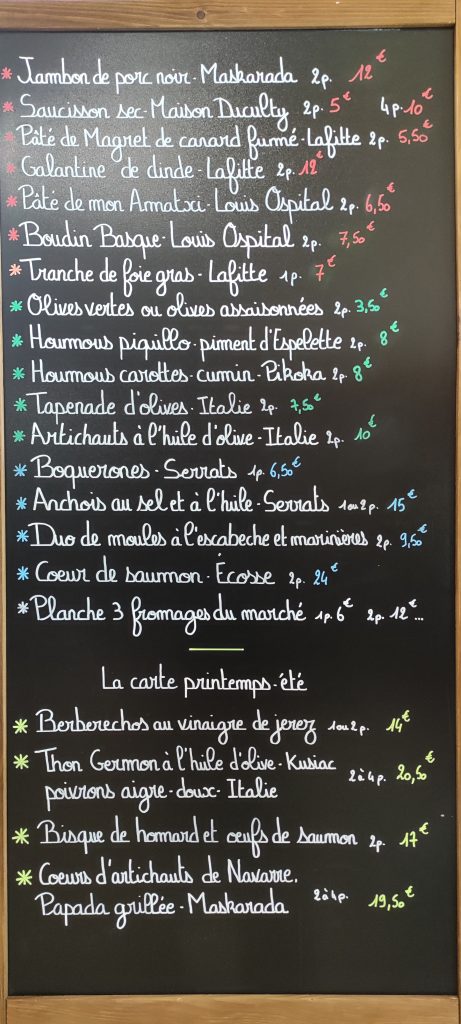 * Jambon de porc noir - Maskarada 2p. 12€
* Saucisson sec - Maison Duculty 2p. 5€ 4p. 10€
* Pâté de Magret de canard fumé - Lafitte 2p. 5,50€
* Galantine de dinde - Lafitte 2p. 12€
* Pâté de mon Amatxi - Louis Ospital 2p. 6,50€
* Boudin Basque - Louis Ospital 2p. 7,50€
* Tranche de foie gras - Lafitte 1p. 7€
* Olives vertes ou olives assaisonnées 2p. 3,50€
* Houmous piquillo - piment d'Espelette 2p. 8€
* Houmous carottes - cumin - Pikoka 2p. 8€
* Tapenade d'olives - Italie 2p. 7,50€
* Artichauts à l'huile d'olive - Italie 2p. 10€
* Boquerones - Serrats 1p. 6,50€
* Anchois au sel et à l'huile - Serrats 1 ou 2p. 15€
* Duo de moules à l'escabeche et marinières 2p. 9,50€
* Coeur de saumon - Écosse 2p. 24€
* Planche 3 fromages du marché 1p. 6€ 2p. 12€...
La carte printemps - été
* Berberechos au vinaigre de jerez 1 ou 2p. 14€
* Thon Germon à l'huile d'olive - Kusiac
poivrons aigre - doux - Italie 2 à 4p. 20,50€
* Bisque de homard et oeufs de saumon 2p. 17€
* Coeurs d'artichauts de Navarre.
Papada grillée - Maskarada 2 à 4p. 19,50€